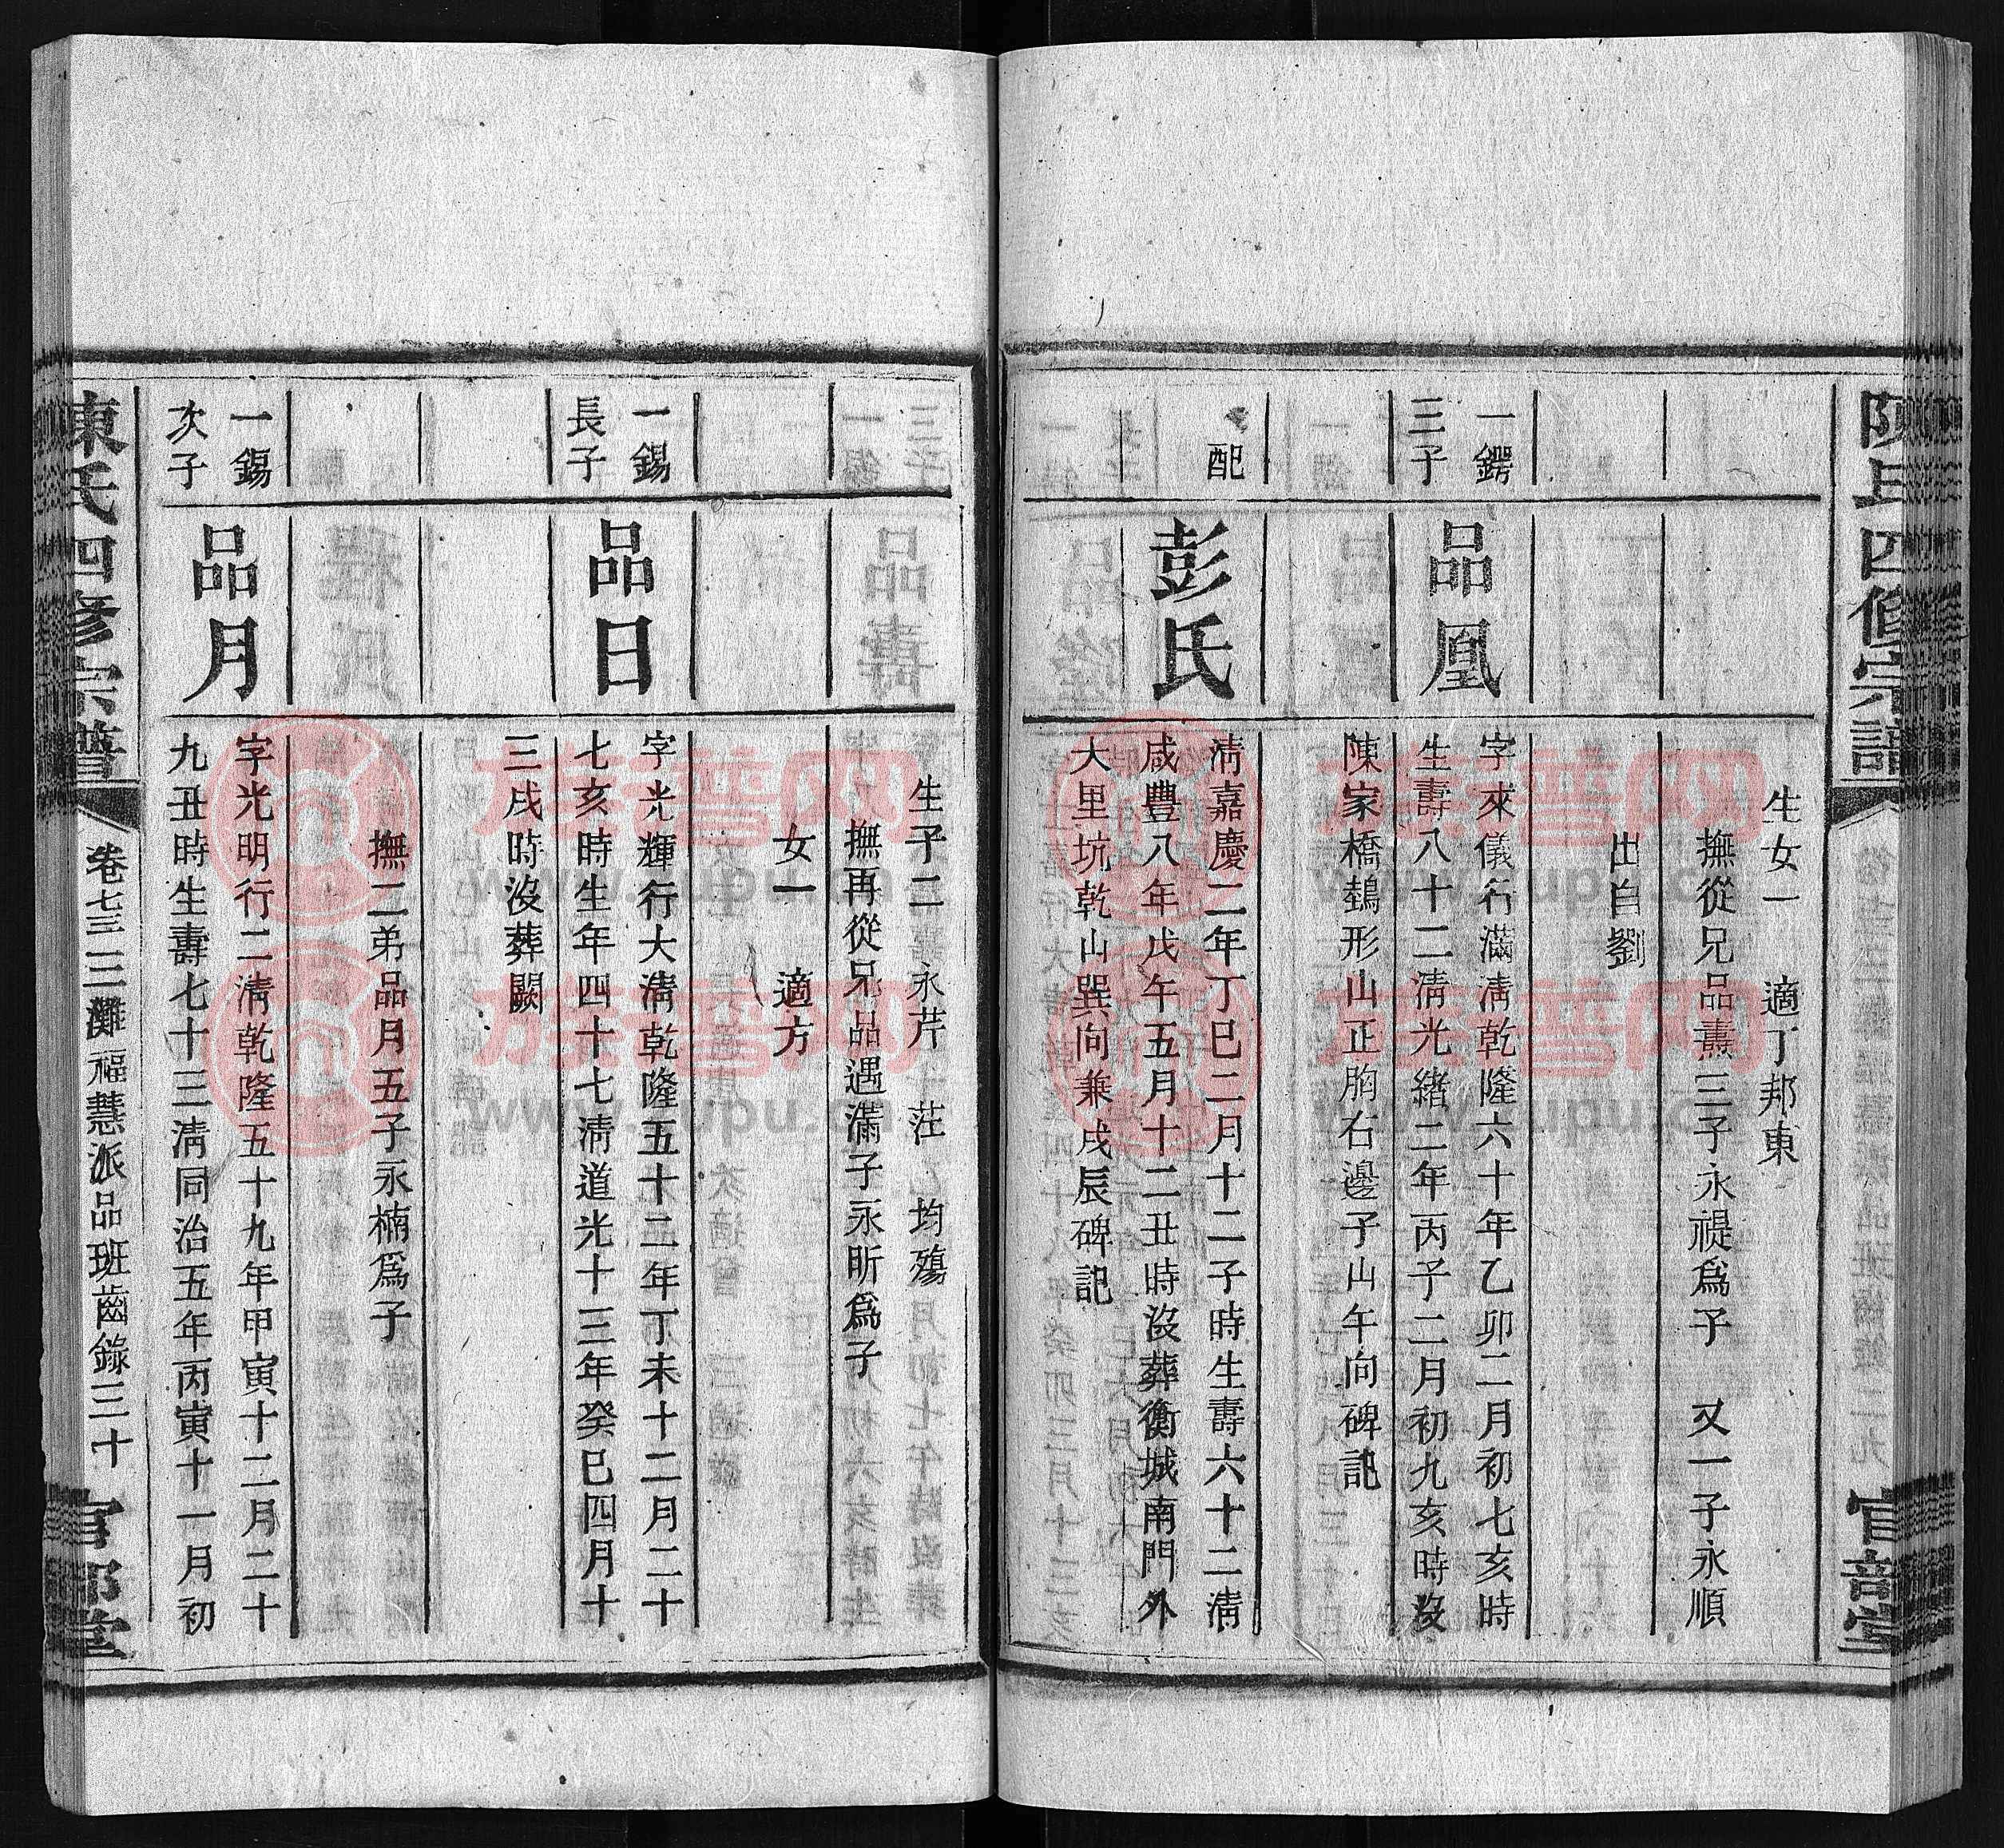 陳氏四修宗譜
官部堂
生女一　適丁邦東
撫從兄品燾三子永禔爲子　又一子永順
出自劉
一鍔
三子
品凰
字來儀行滿淸乾隆六十年乙卯二月初七亥時
生壽八十二淸光緒二年丙子二月初九亥時沒
陳家橋鵠形山正胸右邊子山午向碑記
配
彭氏
淸嘉慶二年丁巳二月十二子時生壽六十二淸
咸豐八年戊午五月十二丑時沒葬衡城南門外
大里坑乾山巽向兼戌辰碑記
生子二　永芹　茳　均殤
撫再從兄品遇滿子永昕爲子
女一　適方
一錫
長子
品日
字光輝行大淸乾隆五十二年丁未十二月二十
七亥時生年四十七淸道光十三年癸巳四月十
三戌時沒葬闕
撫二弟品月五子永楠爲子
一錫
次子
品月
字光明行二淸乾隆五十九年甲寅十二月二十
九丑時生壽七十三淸同治五年丙寅十一月初
陳氏四修宗譜
卷七三 三灘福慧派品班齒錄三十
官部堂
族譜网
www.zupu.cn
族譜网
www.zupu.cn
族譜网
www.zupu.cn
族譜网
www.zupu.cn